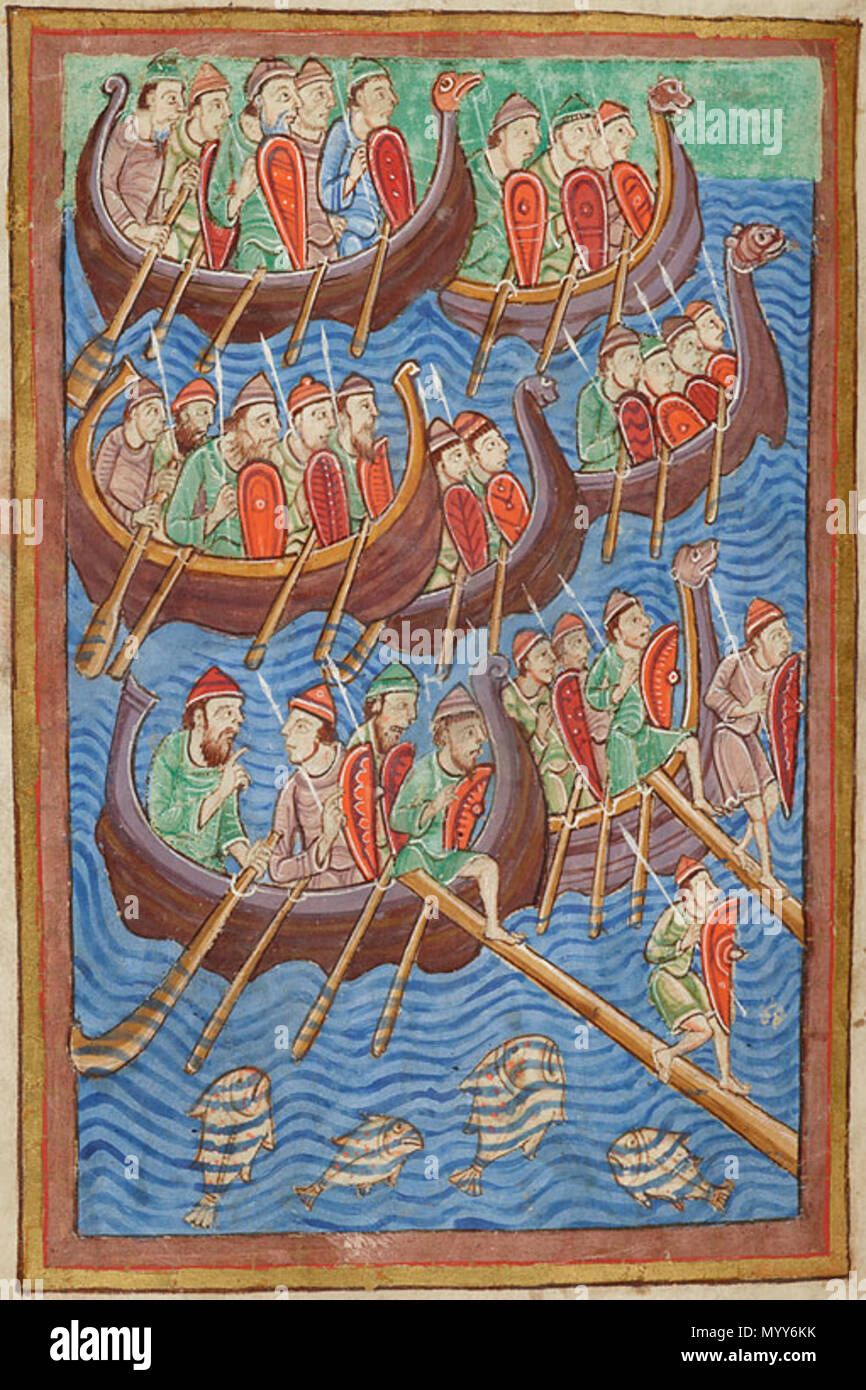 alamy
Image ID: MYY6KK
www.alamy.com